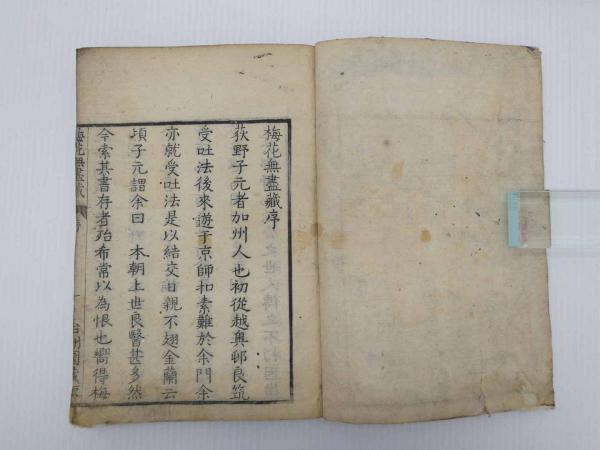 梅花無盡藏序
荻野子元者加州人也初從越奥邨良筑
受吐法後來遊于京師扣素難於余門余
亦就受吐法是以結交日親不翅金蘭云
頃子元謂余曰 本朝上世良醫甚多然
今索其書存者殆希常以為恨也嚮得梅
梅花無盡藏